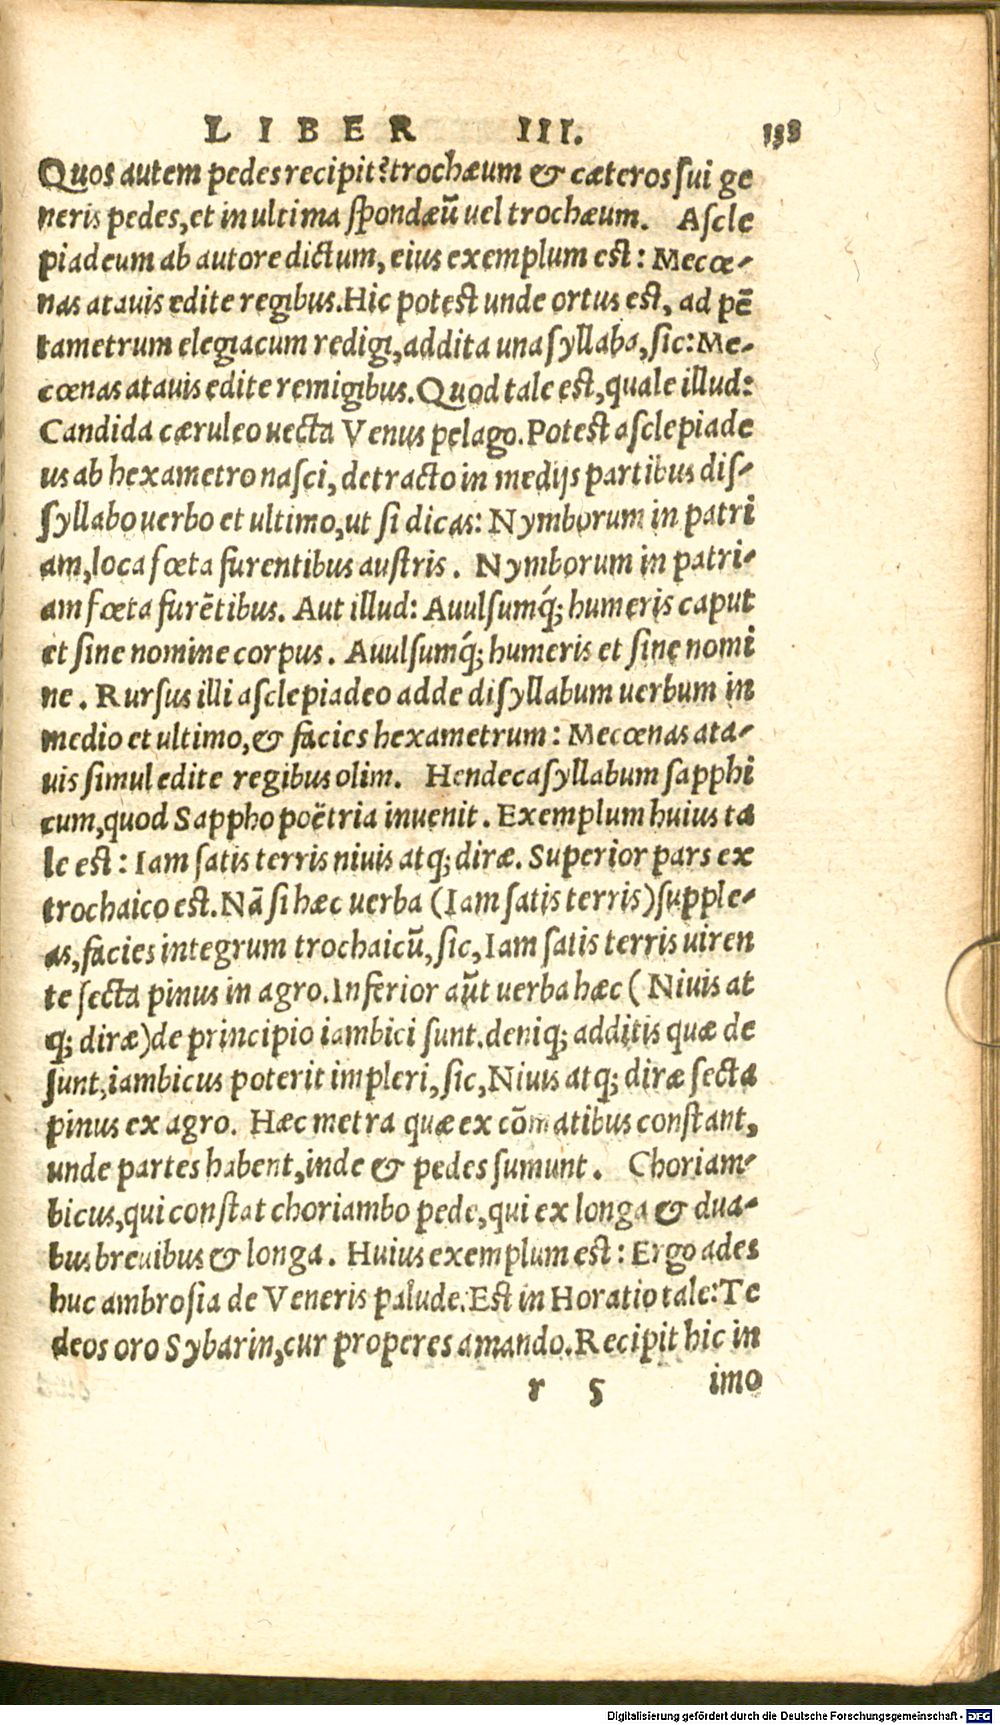 LIBER III. 133
Quos autem pedes recipit? trochæum & cæteros sui ge
neris pedes, et in ultima spondæū uel trochæum. Ascle
piadeum ab autore dictum, eius exemplum est: Mecœ-
nas atauis edite regibus. Hic potest unde ortus est, ad pē
tametrum elegiacum redigi, addita una syllaba, sic: Me-
cœnas atauis edite remigibus. Quod tale est, quale illud:
Candida cæruleo uecta Venus pelago. Potest asclepiade
us ab hexametro nasci, detracto in medijs partibus dis-
syllabo uerbo et ultimo, ut si dicas: Nymborum in patri
am, loca fœta furentibus austris. Nymborum in patri-
am fœta furētibus. Aut illud: Auulsumq́; humeris caput
et sine nomine corpus. Auulsumq́; humeris et sine nomi
ne. Rursus illi asclepiadeo adde disyllabum uerbum in
medio et ultimo, & facies hexametrum: Mecœnas ata-
uis simul edite regibus olim. Hendecasyllabum sapphi
cum, quod Sappho poëtria inuenit. Exemplum huius ta
le est: Iam satis terris niuis atq; diræ. Superior pars ex
trochaico est. Nā si hæc uerba (Iam satis terris) supple-
as, facies integrum trochaicū, sic, Iam satis terris uiren
te secta pinus in agro. Inferior aūt uerba hæc (Niuis at
q; diræ) de principio iambici sunt. deniq; additis quæ de
sunt, iambicus poterit impleri, sic, Niuis atq; diræ secta
pinus ex agro. Hæc metra quæ ex cōmatibus constant,
unde partes habent, inde & pedes sumunt. Choriam-
bicus, qui constat choriambo pede, qui ex longa & dua-
bus breuibus & longa. Huius exemplum est: Ergo ades
huc ambrosia de Veneris palude. Est in Horatio tale: Te
deos oro Sybarin, cur properes amando. Recipit hic in
r 5 imo
Digitalisierung gefördert durch die Deutsche Forschungsgemeinschaft - DFG